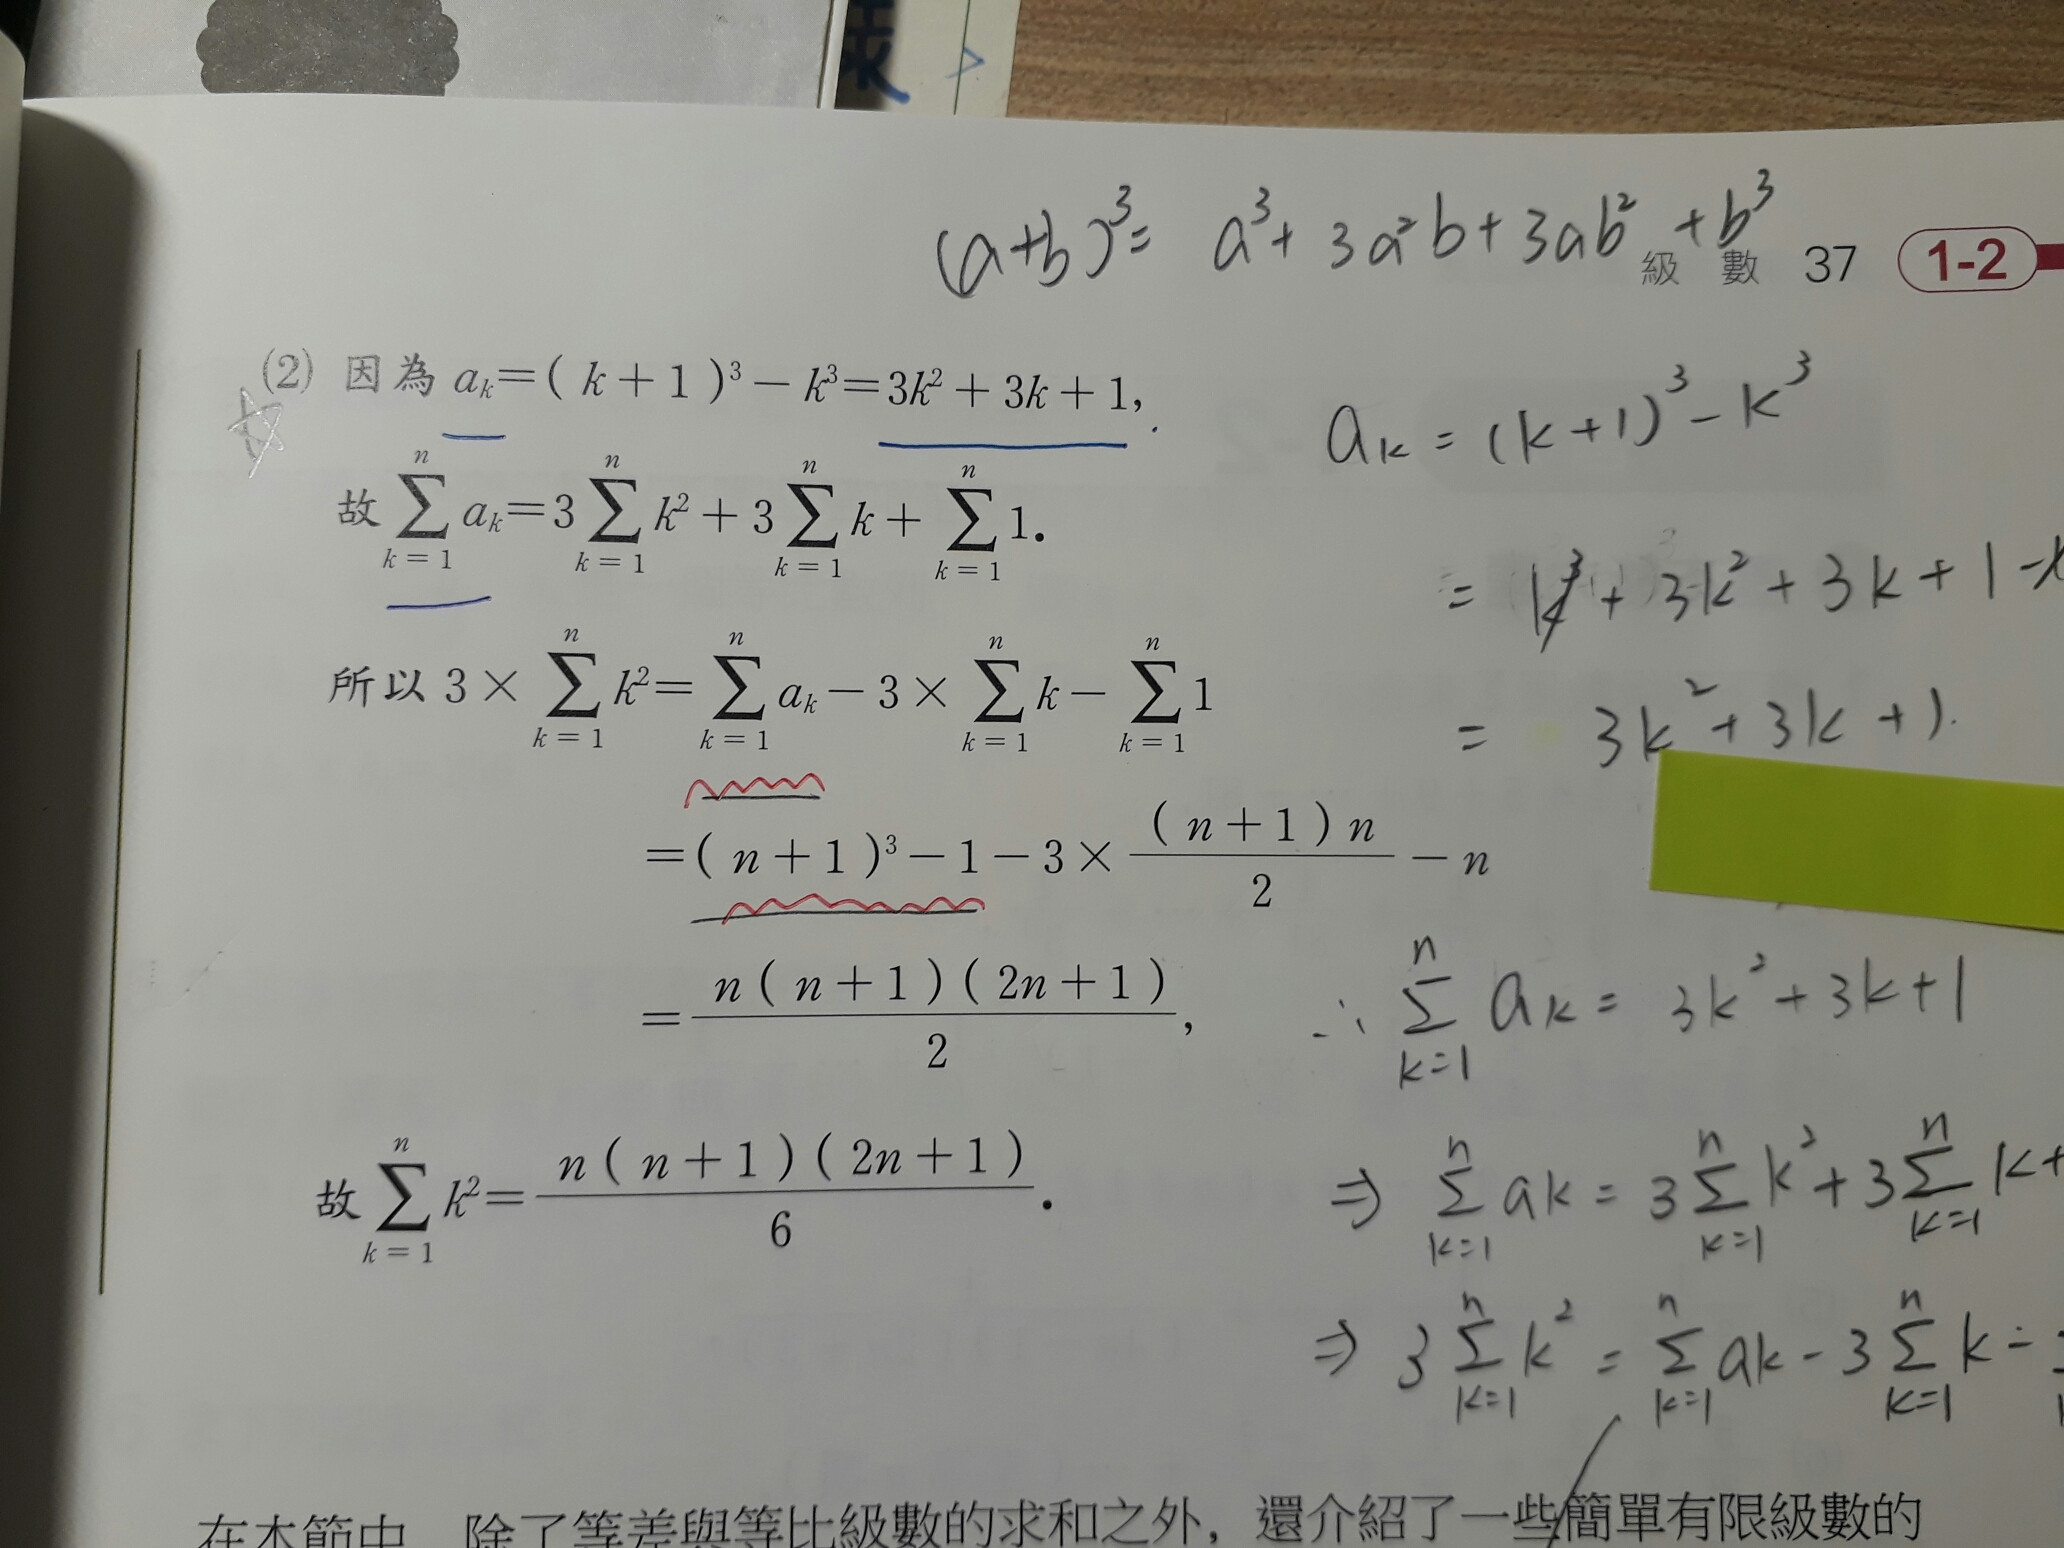 求
(a+b)³= a³+3a²b+3ab²+b³
級數 37 1-2
(2) 因為 aₖ=(k+1)³-k³=3k²+3k+1,
故 ∑ₖ₌₁ⁿ aₖ=3∑ₖ₌₁ⁿ k²+3∑ₖ₌₁ⁿ k+∑ₖ₌₁ⁿ 1.
所以 3×∑ₖ₌₁ⁿ k²=∑ₖ₌₁ⁿ aₖ-3×∑ₖ₌₁ⁿ k-∑ₖ₌₁ⁿ 1
=(n+1)³-1-3×\frac{(n+1)n}{2}-n
=\frac{n(n+1)(2n+1)}{2},
故 ∑ₖ₌₁ⁿ k²=\frac{n(n+1)(2n+1)}{6}.
aₖ=(k+1)³-k³
=k³+3k²+3k+1-
=3k²+3k+1.
∴ ∑ₖ₌₁ⁿ aₖ=3k²+3k+1
⇒ ∑ₖ₌₁ⁿ aₖ=3∑ₖ₌₁ⁿ k²+3∑ₖ₌₁ⁿ k+
⇒ 3∑ₖ₌₁ⁿ k²=∑ₖ₌₁ⁿ aₖ-3∑ₖ₌₁ⁿ k-
在本節中，除了等差與等比級數的求和之外，還介紹了一些簡單有限級數的